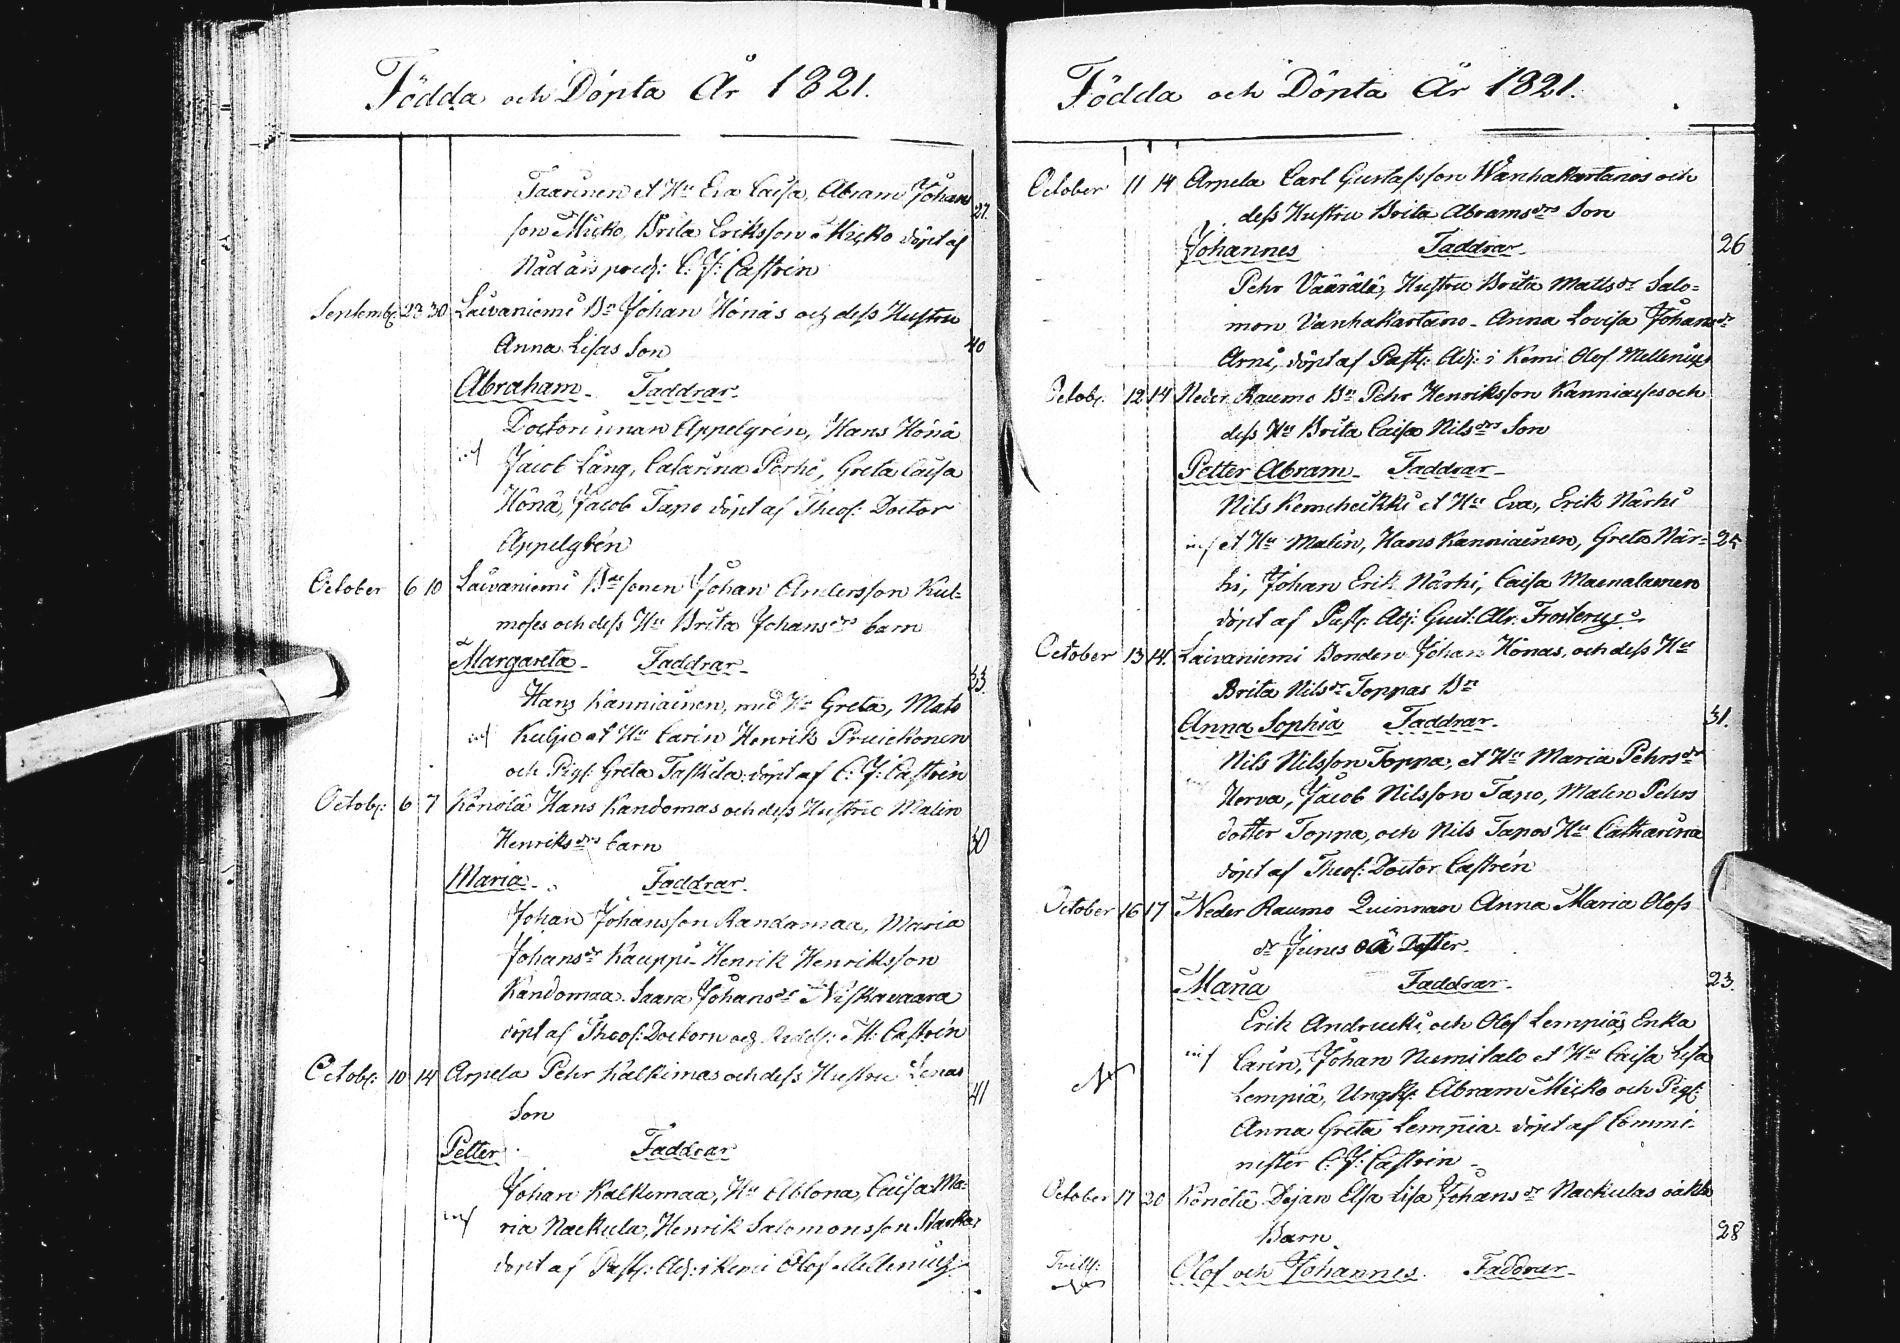 Födda och Döpta År 1821.
Taarinen et Hu Eva Caisa, Abram Johans
son Micko, Brita Eriksson Micko döpt af
Nådårs pred: C. J: Castrén
27.
Septemb: 23 30 Laivaniemi Bn Johan Hönäs och dess Hustru
Anna Lisas Son
40
Abraham. Faddrar.
Doctorinnan Appelgrén, Hans Hönä
inf Jacob Lång, Catarina Perho, Greta Caisa
Hönä, Jacob Tapo döpt af Theol: Doctor
Appelgrén
October 6 10 Laivaniemi Bdesonen Johan Andersson Kul-
moses och dess Hu Brita Johansdrs barn
Margareta. Faddrar.
33.
Hans Kanniainen, med Hu Greta, Mats
inf Kuljo et Hu Carin Henrik Pruickonen
och Pig: Greta Taskila. döpt af C: J: Castrén
Octob: 6 7 Könölä Hans Kandomas och dess Hustru Malin
Henriksdrs barn
30
Maria. Faddrar.
Johan Johansson Randamaa, Maria
Johansdr Kauppi. Henrik Henriksson
Kandomaa. Saara Johansdr Niskavaara
döpt af Theol: Doctorn och M: Castrén
Octob: 10 14 Arpela Pehr Kalkimas och dess Hustru Lenas
Son
41
Petter. Faddrar
Johan Kalkimaa, Hu Ablona, Caisa Ma-
inf ria Nackula, Henrik Salomonsson
döpt af Past: Adj: i Kemi Olof Mellenius.
Födda och Döpta År 1821.
October 11 14 Arpela Carl Gustafsson Wanhakartanos och
dess Hustru Brita Abramsdrs Son
Johannes Faddrar.
26
Pehr Väärälä, Hustru Brita Matsdr Salo-
mon Vanhakartano. Anna Lovisa Johansdr
Arni, döpt af Past: Adj: i Kemi Olof Mellenius
Octob: 12 14 Neder Raumo Bn Pehr Henriksson Kanniaises och
dess Hu Brita Caisa Nilsdrs Son
Petter Abram. Faddrar.
Nils Kemeheickki et Hu Eva, Erik Närhi
inf et Hu Malin, Hans Kanniainen, Greta När-
25
hi, Johan Erik Närhi, Caisa Maenalainen
döpt af Past: Adj: Gust: Alr. Frosterus.
October 13 14. Laivaniemi Bonden Johan Hönas, och dess Hu
Brita Nilsdr Toppas Bn
Anna Sophia Faddrar.
31.
Nils Nilsson Toppa, et Hu Maria Pehrsdr
Herva, Jacob Nilsson Tapo, Malen Pehrs
dotter Toppa, och Nils Tapos Hu Catharina
döpt af Theol: Doctor Castrén
October 16 17 Neder Raumo Quinnan Anna Maria Olofs
dr Junes oä Dotter.
Maria Faddrar.
23.
Erik Andrucki, och Olof Lempiäs Enka
inf Carin, Johan Numitalo et Hu Caisa Lisa
Lempiä, Ungk: Abram Micko och Pig:
Anna Greta Lempiä. döpt af Commi-
nister C: J: Castrén.
October 17 20 Könölä Dejan Elsa Lisa Johansdr Nackulas oäkta
Barn.
28
Tvill:
Olof och Johannes. Faddrar.